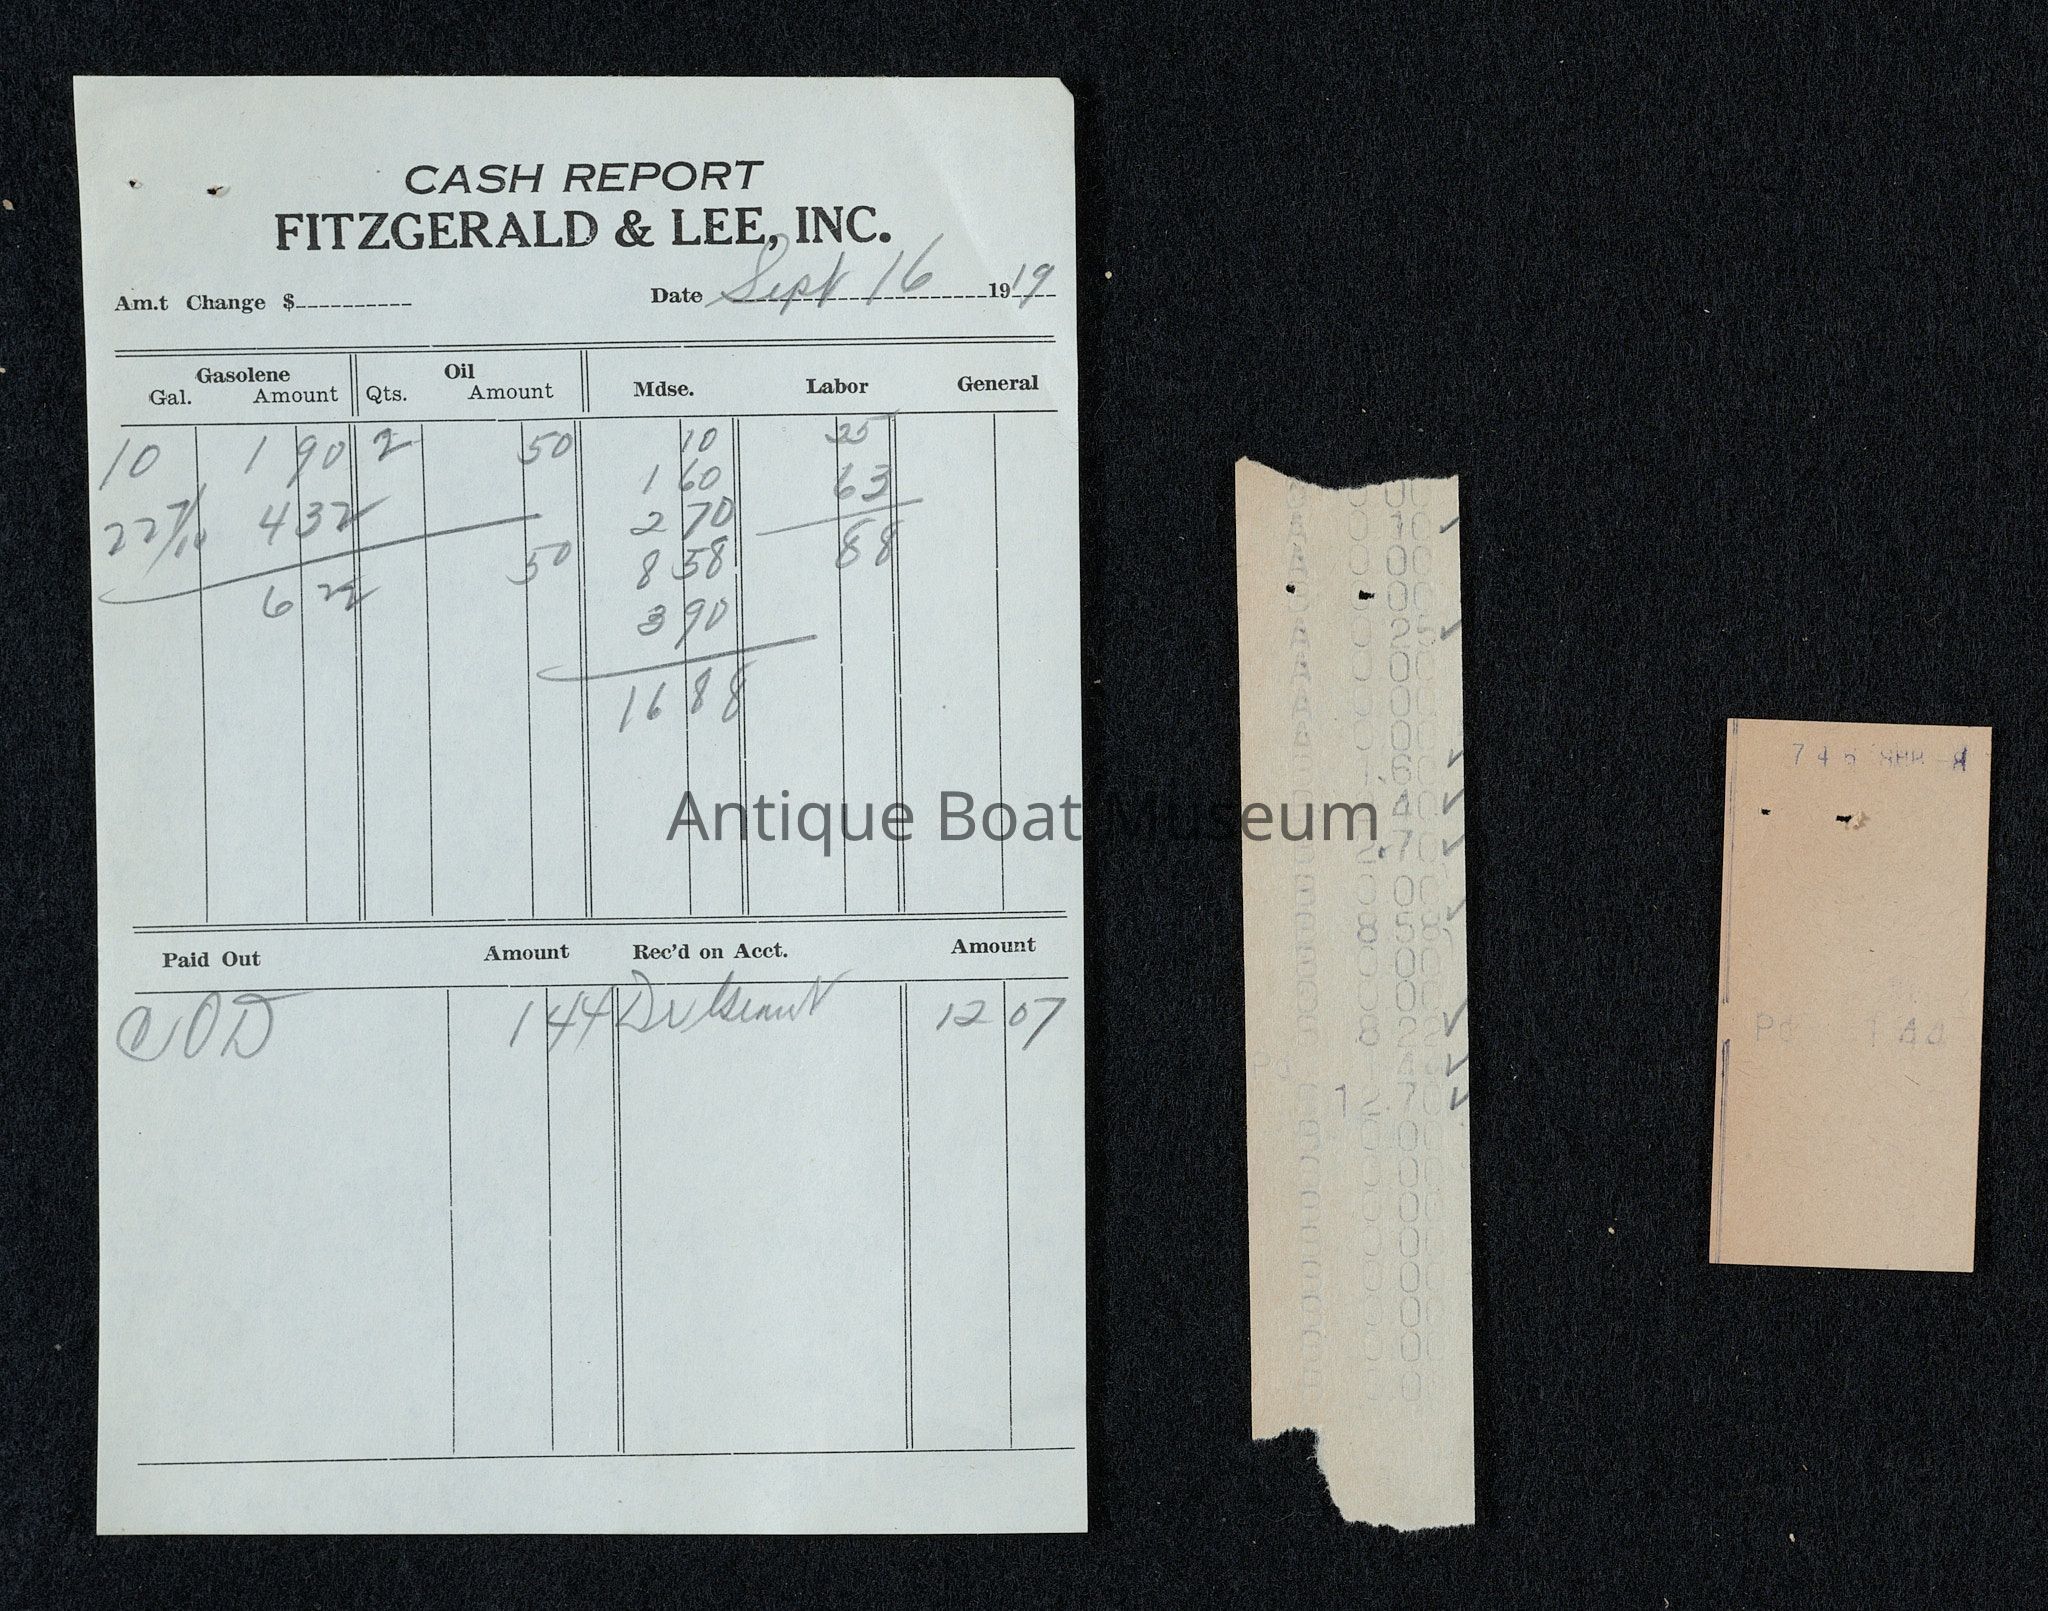 CASH REPORT
FITZGERALD & LEE, INC.
Am.t Change $ Date Sept 16 1919
Gasolene Oil Mdse. Labor General
Gal. Amount Qts. Amount
10 1 90 2 50 10 25
1 60 63
22 7/10 4 32 2 70 88
50 8 58
6 22 3 90
16 88
Paid Out Amount Rec'd on Acct. Amount
COD 1 44 12 07
Antique Boat Museum
0 10
0 00
0 00
0 25
0 00
0 00
0 00
1.60
2.70
0 00
8 58
0 00
0 00
8 22
12.70
0 00
0 00
0 00
0 00
0 00
0 00
0 00
0 00
745